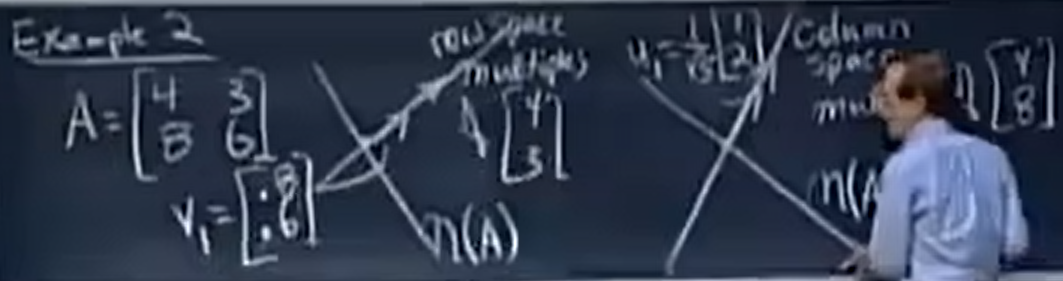 Example 2
A = [4 3
8 6]
v₁ = [.8
.6]
row space
multiples
of [4
3]
n(A)
u₁ = 1/√5 [1
2]
column
space
of [4
8]